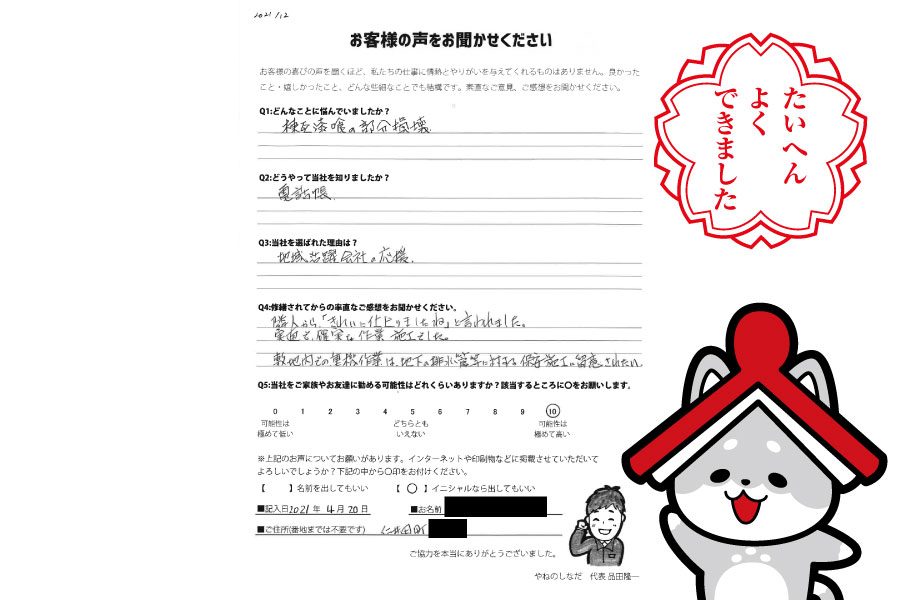 2021/12
お客様の声をお聞かせください
お客様の喜びの声を聞くほど、私たちの仕事に情熱とやりがいを与えてくれるものはありません。良かった
こと・嬉しかったこと、どんな些細なことでも結構です。素直なご意見、ご感想をお聞かせください。
Q1:どんなことに悩んでいましたか？
棟瓦漆喰の部分損壊
Q2:どうやって当社を知りましたか？
電話帳
Q3:当社を選ばれた理由は？
地域活躍会社の応援
Q4:修繕されてからの率直なご感想をお聞かせください。
隣人から「きれいに仕上りましたね」と言われました。
確実な作業 施工でした。
敷地内での重機作業は、地下の排水管等に対する保守施工に留意されたい
Q5:当社をご家族やお友達に勧める可能性はどれくらいありますか？該当するところに〇をお願いします。
0 1 2 3 4 5 6 7 8 9 10
可能性は 極めて低い
どちらとも いえない
可能性は 極めて高い
※上記のお声についてお願いがあります。インターネットや印刷物などに掲載させていただいて
よろしいでしょうか？下記の中から〇印をお付けください。
【　】名前を出してもいい 【〇】イニシャルなら出してもいい
■記入日2021年 4月20日 ■お名前
■ご住所(番地までは不要です) 仁井田町
ご協力を本当にありがとうございました。
やねのしなだ 代表 品田隆一
たいへん
よく
できました